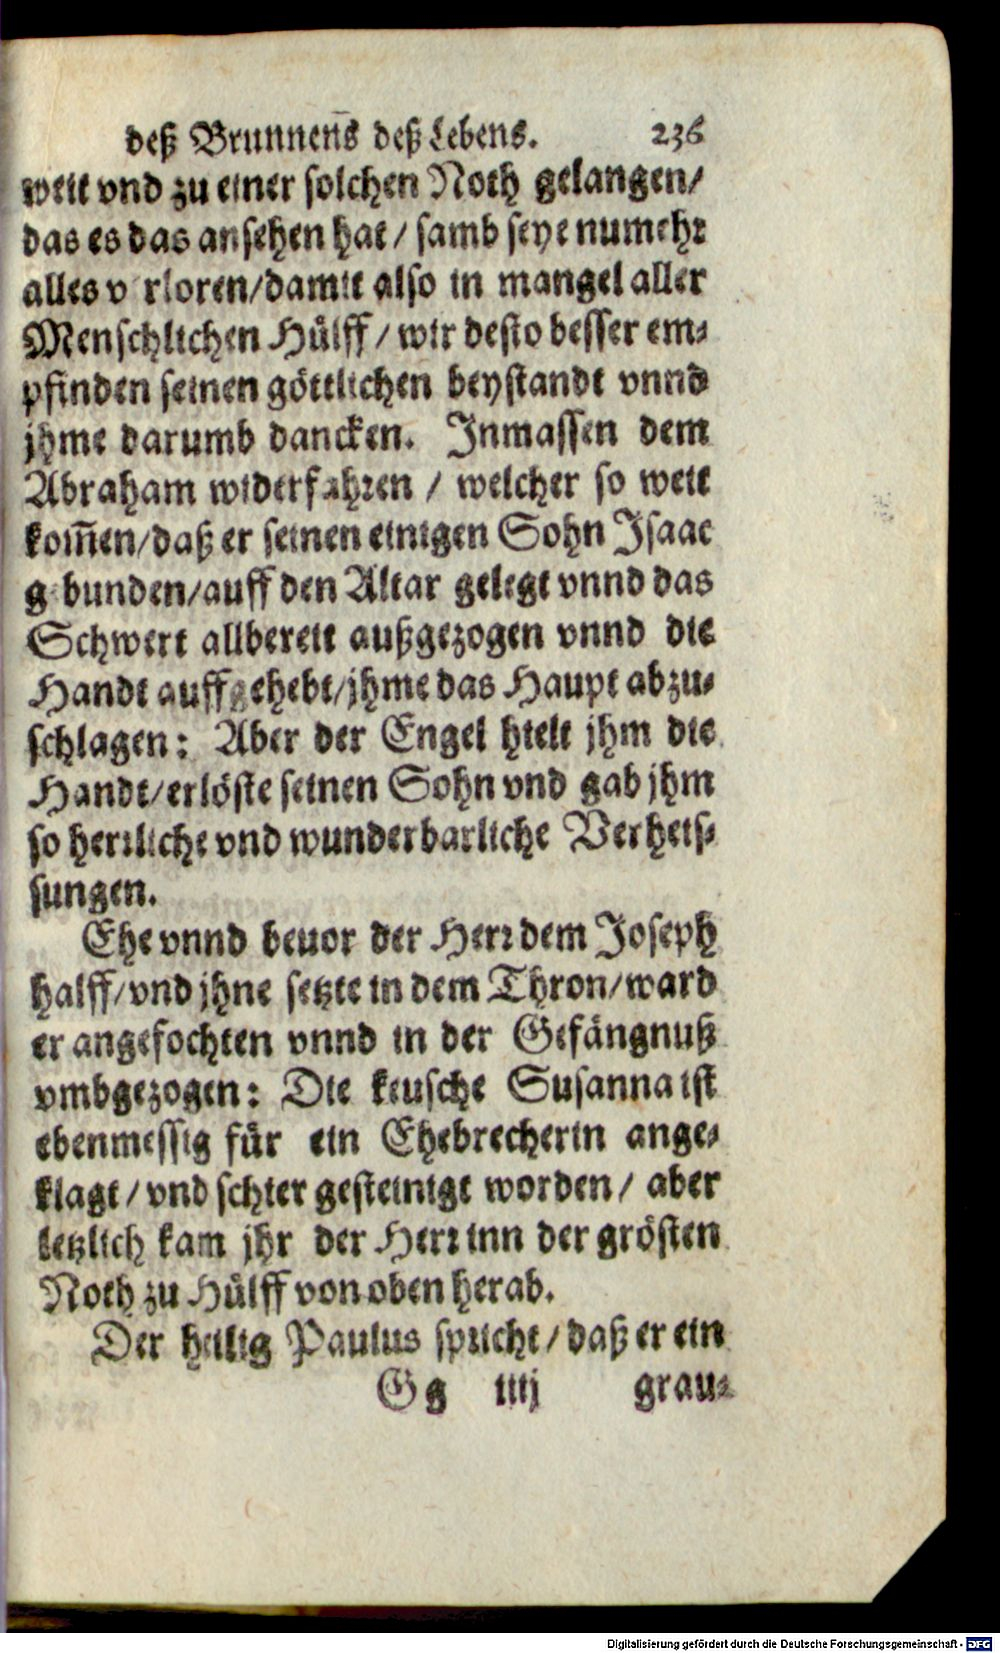 deß Brunnens deß Lebens. 236
weit vnd zu einer solchen Noth gelangen/
das es das ansehen hat / samb seye numehr
alles v rloren/damit also in mangel aller
Menschlichen Hülff / wir desto besser em⸗
pfinden seinen göttlichen beystandt vnnd
jhme darumb dancken. Inmassen dem
Abraham widerfahren / welcher so weit
kom̃en/daß er seinen einigen Sohn Isaac
g bunden/auff den Altar gelegt vnnd das
Schwert allbereit außgezogen vnnd die
Handt auffgehebt/jhme das Haupt abzu⸗
schlagen: Aber der Engel hielt jhm die
Handt/erlöste seinen Sohn vnd gab jhm
so herrliche vnd wunderbarliche Verheis⸗
sungen.
Ehe vnnd beuor der Herr dem Joseph
halff/vnd jhne setzte in dem Thron/ward
er angefochten vnnd in der Gefängnuß
vmbgezogen: Die keusche Susanna ist
ebenmessig für ein Ehebrecherin ange⸗
klagt / vnd schier gesteinigt worden / aber
letzlich kam jhr der Herr inn der grösten
Noth zu Hülff von oben herab.
Der heilig Paulus spricht / daß er ein
Gg iiij grau⸗
Digitalisierung gefördert durch die Deutsche Forschungsgemeinschaft - DFG